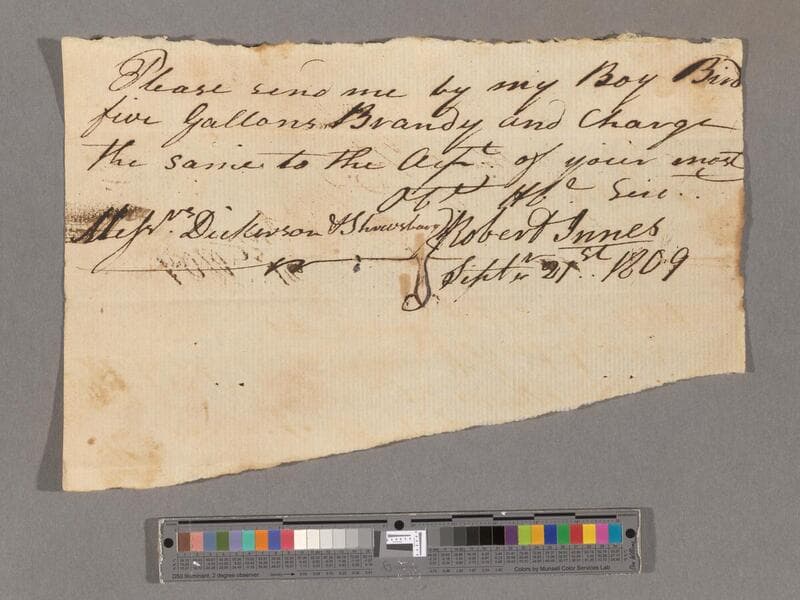 Please send me by my Boy Bird
five Gallons Brandy and Charge
the same to the Acpt. of your most
Obt. Hbe Serv.
Messrs. Dickerson & Shrewsbury
Robert Innes
Septr 21st. 1809
D50 Illuminant, 2 degree observer
Colors by Munsell Color Services Lab